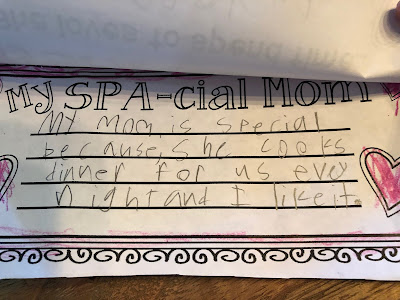 My SPA-cial Mom
My mom is special
because, she cooks
dinner for us evey
night and I like it.